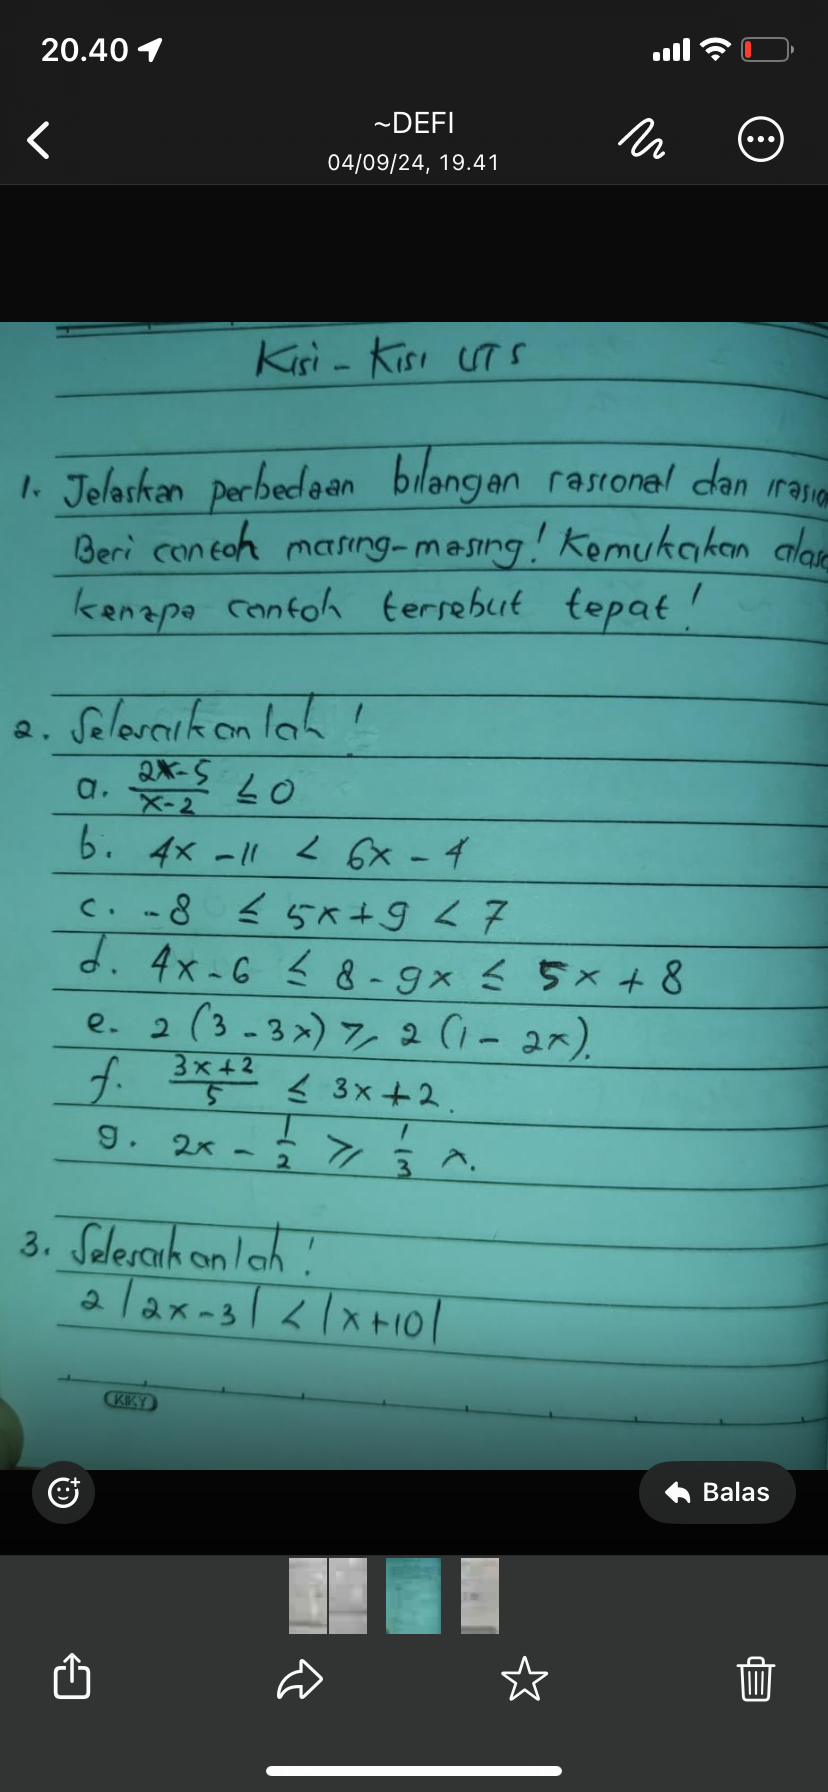 20.40
~DEFI
04/09/24, 19.41
Kisi - Kisi UTS
1. Jelaskan perbedaan bilangan rasional dan irasion
Beri contoh masing-masing! Kemukakan alasa
kenapa contoh tersebut tepat!
2. Selesaikanlah!
a. (2x-5)/(x-2) ≤ 0
b. 4x - 11 < 6x - 4
c. -8 ≤ 5x + 9 < 7
d. 4x - 6 ≤ 8 - 9x ≤ 5x + 8
e. 2 (3 - 3x) ≥ 2 (1 - 2x).
f. (3x+2)/5 ≤ 3x + 2.
g. 2x - 1/2 ≥ 1/3 x.
3. Selesaikanlah!
2 |2x - 3| < |x + 10|
KIKY
Balas